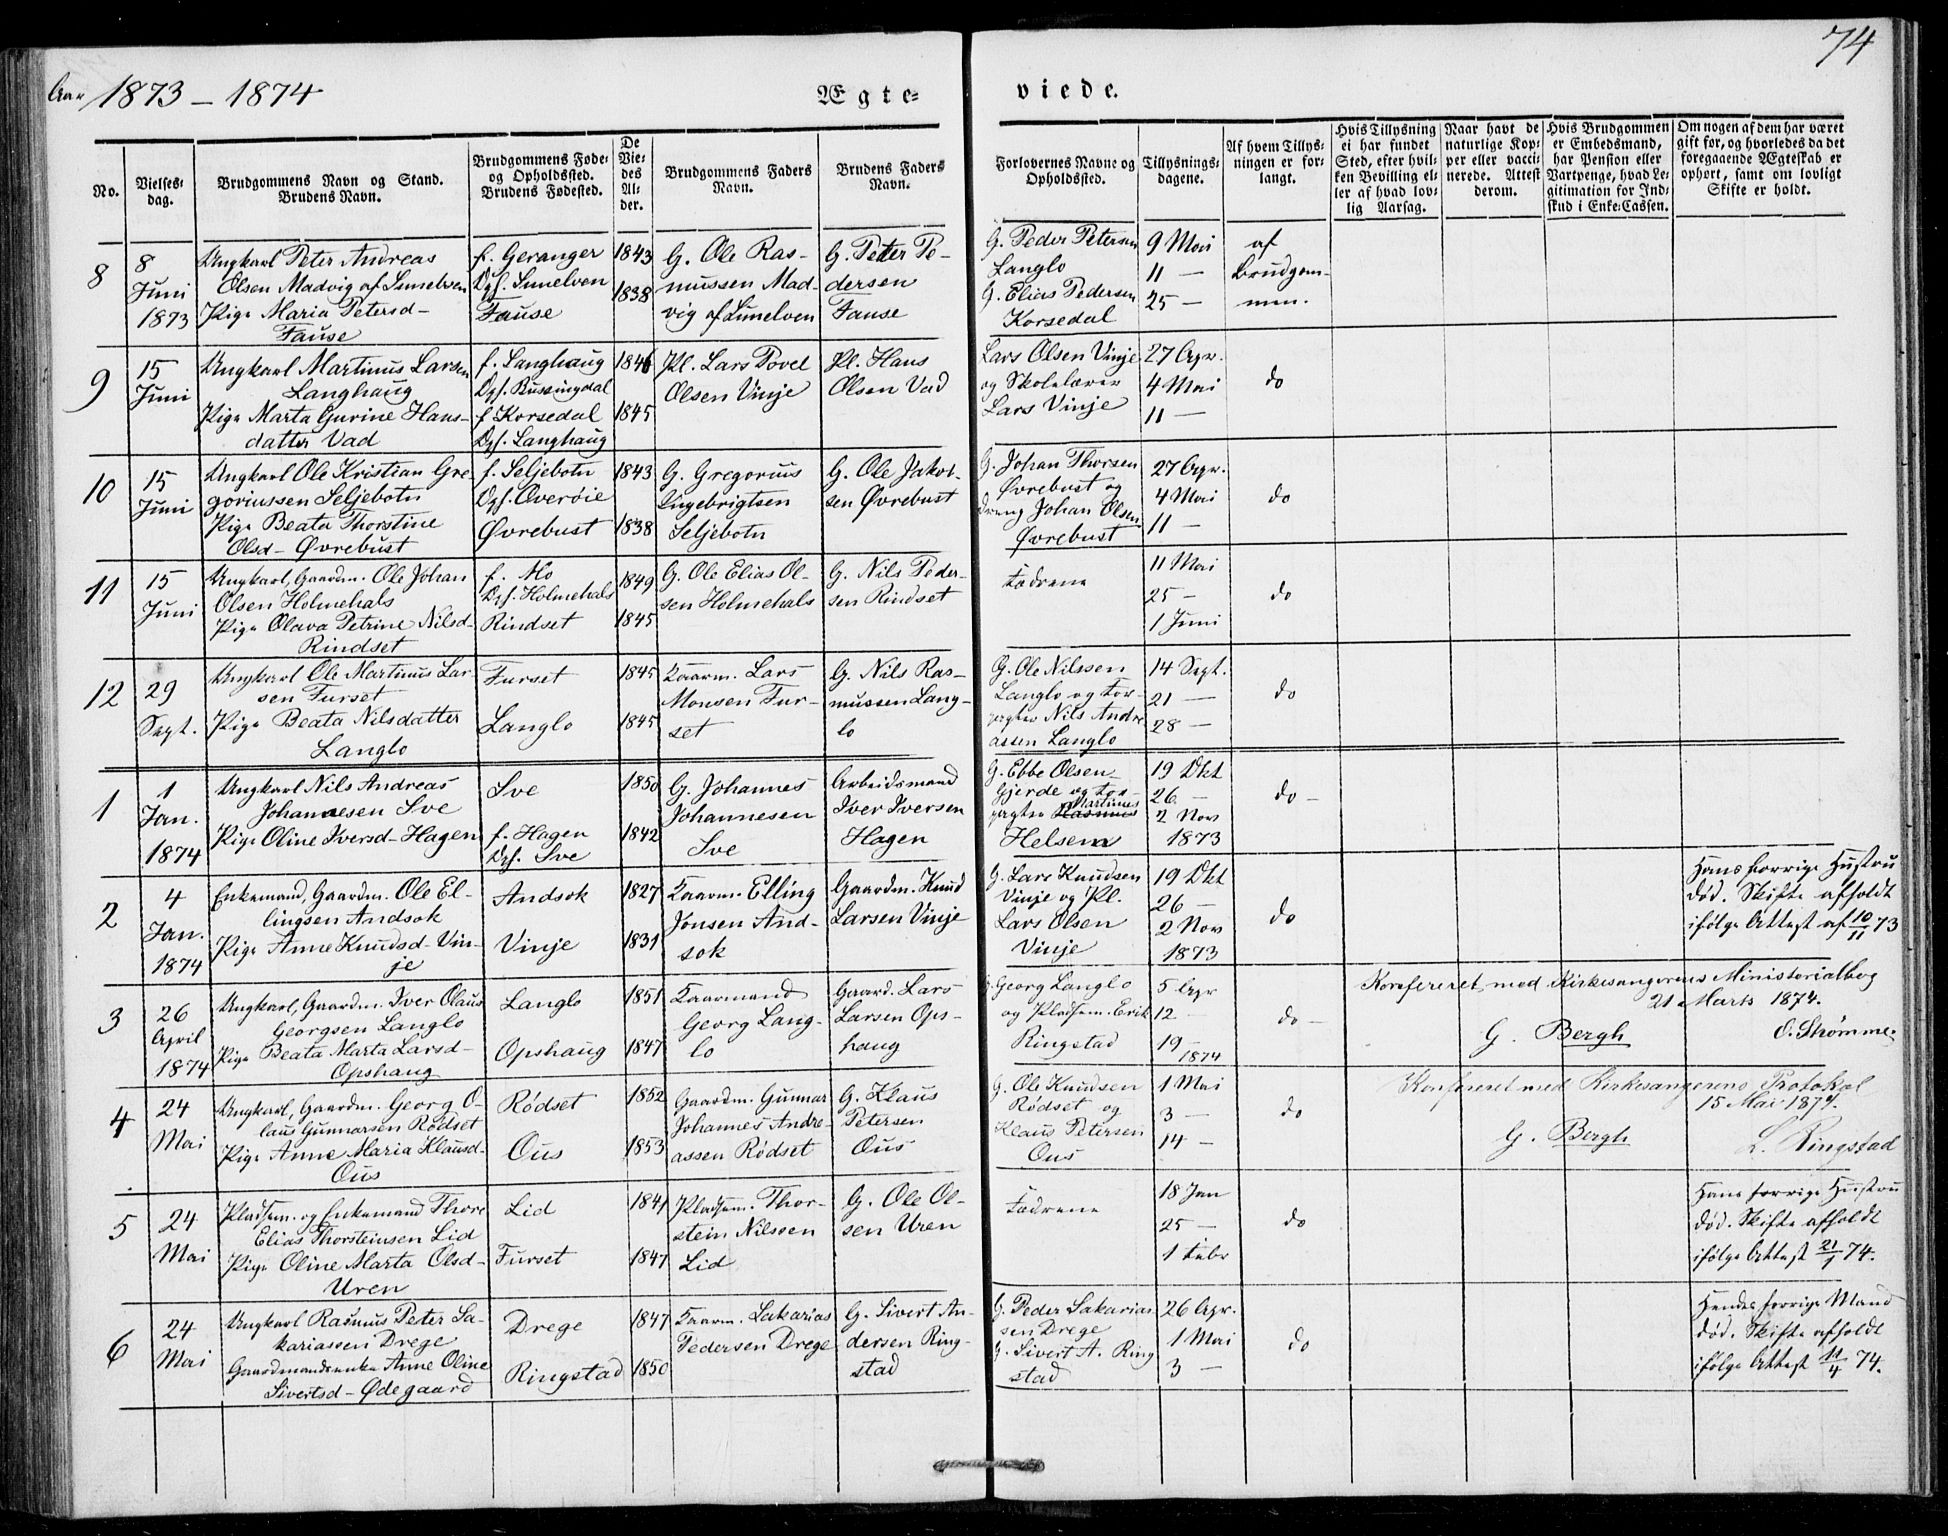 74
Aar 1873 – 1874
Ægte=
viede.
No.
Vielses=
dag.
Brudgommens Navn og Stand.
Brudens Navn.
Brudgommens Føde=
og Opholdssted.
Brudens Fødested.
De
Vie=
des
Al=
der.
Brudgommens Faders
Navn.
Brudens Faders
Navn.
Forlovernes Navne og
Opholdssted.
Tillysnings=
dagene.
Af hvem Tillys=
ningen er for=
langt.
Hvis Tillysning
ei har fundet
Sted, efter hvil=
ken Bevilling el=
ler af hvad lov=
lig Aarsag.
Naar havt de
naturlige Kop=
per eller vacci=
nerede. Attest
derom.
Hvis Brudgommen
er Embedsmand,
har Pension eller
Vartpenge, hvad Le=
gitimation for Ind=
skud i Enke=Cassen.
Om nogen af dem har været
gift før, og hvorledes da det
foregaaende Ægteskab er
ophørt, samt om lovligt
Skifte er holdt.
8
8
Juni
1873
Ungkarl Peter Andreas
Olsen Madvig af Sunelven
Pige Maria Petersd–
Fause
f. Geranger
Opf. Sunelven
Fause
1843
1838
G. Ole Ras–
mussen Mad–
vig af Sunelven
G. Peter Pe–
dersen
Fause
G. Peder Petersen
Langlo
G. Elias Pedersen
Korsedal
9 Mai
11 —
25 —
af
Brudgom–
men.
9
15
Juni
Ungkarl Martinus Larsen
Langhaug
Pige Marta Gurine Hans–
datter Vad
f. Langhaug
Opf. Bussingdal
f Korsedal
Opf. Langhaug
1846
1845
Pl. Lars Povel
Olsen Vinje
Pl. Hans
Olsen Vad
Lars Olsen Vinje
og Skolelærer
Lars Vinje
27 Apr.
4 Mai
11 —
do
10
15
Juni
Ungkarl Ole Kristian Gre
goriussen Seljebotn
Pige Beata Thorstine
Olsd– Øvrebust
f. Seljebotn
Opf. Overøie
Øvrebust
1843
1838
G. Gregorius
Ingebrigtsen
Seljebotn
G. Ole Jakob–
sen Øvrebust
G. Johan Thorsen
Øvrebust og
dreng Johan Olsen
Øvrebust
27 Apr.
4 Mai
11 —
do
11
15
Juni
Ungkarl, Gaardm. Ole Johan
Olsen Holmehals
Pige Olava Petrine Nilsd–
Rindset
f. Mo
Opf. Holmehals
Rindset
1849
1845
G. Ole Elias Ol–
sen Holmehals
G. Nils Peder–
sen Rindset
Fædrene
11 Mai
25 —
1 Juni
do
12
29
Sept.
Ungkarl Ole Martinus Lar
sen Furset
Pige Beata Nilsdatter
Langlo
Furset
Langlo
1845
1845
Kaarm. Lars
Monsen Fur–
set
G. Nils Ras–
mussen Lang–
lo
G. Ole Nilssen
Langlo og For–
pagter Nils Andre
assen Langlo
14 Sept.
21 —
28 —
do
1
1
Jan.
1874
Ungkarl Nils Andreas
Johannesen Sve
Pige Oline Iversd– Hagen
Sve
f. Hagen
Opf. Sve
1850
1842
G. Johannes
Johannesen
Sve
Arbeidsmand
Iver Iversen
Hagen
G. Ebbe Olsen
Gjerde og For–
Martinus
pagter Rasmus
Helsem
19 Okt
26 —
2 Nov
1873
do –
2
4
Jan.
1874
Enkemand, Gaardm. Ole El–
lingsen Andsok
Pige Anne Knudsd– Vin–
je
Andsok
Vinje
1827
1831
Kaarm. Elling
Jonsen And–
sok
Gaardm. Knud
Larsen Vinje
G. Lars Knudsen
Vinje og Pl.
Lars Olsen
Vinje
19 Okt
26 —
2 Nov
1873
do
Hans forrige Hustru
død. Skifte afholdt
ifølge Attest af 10/11 73
3
26
April
1874
Ungkarl, Gaardm. Iver Olaus
Georgsen Langlo
Pige Beata Marta Larsd–
Opshaug
Langlo
Opshaug
1851
1847
Kaarmand
Georg Lang–
lo
Gaard. Lars
Larsen Ops–
haug
G. Georg Langlo
og Pladsem. Erik
Ringstad
5 Apr
12 —
19 —
1874
do –
Konfereret med Kirkesangerens Ministerialbog
21 Marts 1874.
G. Bergh
O. Strømme.
4
24
Mai
Ungkarl, Gaardm. Georg O–
laus Gunnarsen Rødset
Pige Anne Maria Klausd–
Ous
Rødset
Ous
1852
1853
Gaardm. Gunnar
Johannes Andre–
assen Rødset
G. Klaus
Petersen
Ous
G. Ole Knudsen
Rødset og
Klaus Petersen
Ous
1 Mai
3 —
14 —
do
Konfereret med Kirkesangerens Protokol
15 Mai 1874.
G. Bergh
L. Ringstad
5
24
Mai
Pladsem. og Enkemand Thore
Elias Thorsteinsen Lid
Pige Oline Marta Olsd–
Uren
Lid
Furset
1841
1847
Pladsem. Thor–
stein Nilssen
Lid
G. Ole Ol–
sen Uren
Fædrene
18 Jan
25 —
1 Febr
do
Hans forrige Hustru
død. Skifte afholdt
ifølge Attest 21/1 74.
6
24
Mai
Ungkarl Rasmus Peter Sa–
kariassen Drege
Gaardmandsenke Anne Oline
Sivertsd– Ødegaard
Drege
Ringstad
1847
1850
Kaarm. Sakarias
Pedersen Drege
G. Sivert An–
dersen Ring–
stad
G. Peder Sakarias
sen Drege
G. Sivert A. Ring
stad
26 Apr.
1 Mai
3 —
do
Hendes forrige Mand
død. Skifte afholdt
ifølge Attest 11/4 74.